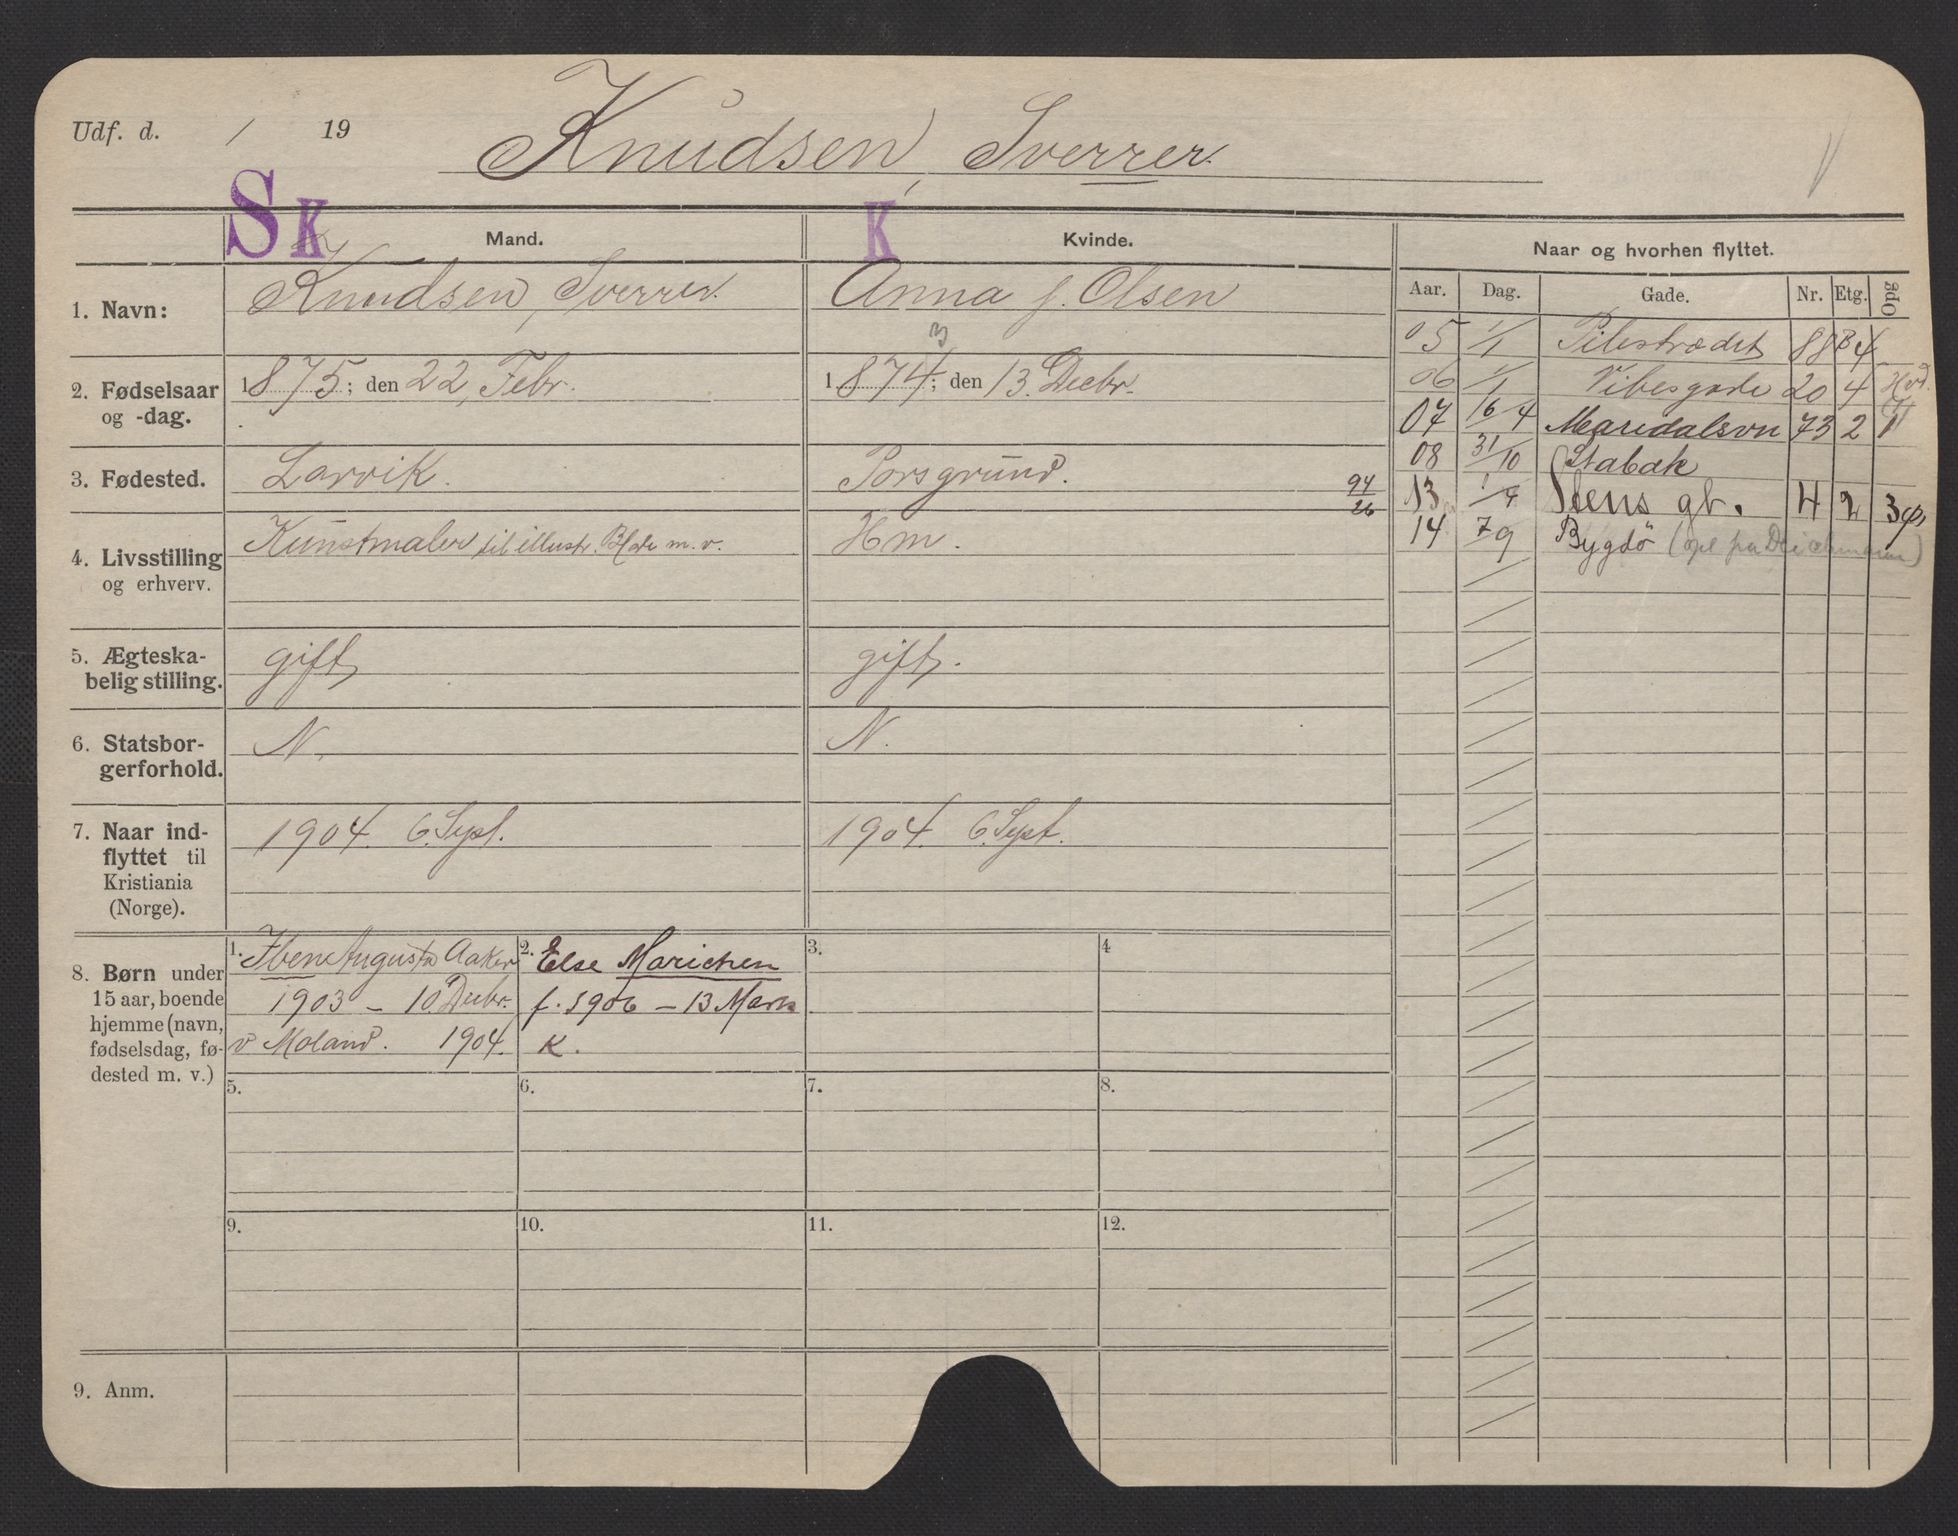 Udf. d. / 19
Knudsen, Sverrer.
S K
K
Mand.
Kvinde.
Naar og hvorhen flyttet.
Aar. Dag. Gade. Nr. Etg. Opg
1. Navn:
Knudsen, Sverrer.
Anna f. Olsen
2. Fødselsaar
og -dag.
1875; den 22, Febr.
3
1874; den 13. Decbr.
3. Fødested.
Larvik.
Porsgrund.
94
26
4. Livsstilling
og erhverv.
Kunstmaler til illustr. Blade m. v.
Hm.
5. Ægteska-
belig stilling.
gift
gift.
6. Statsbor-
gerforhold.
N.
N.
7. Naar ind-
flyttet til
Kristiania
(Norge).
1904. 6. Sept.
1904. 6. Sept.
8. Børn under
15 aar, boende
hjemme (navn,
fødselsdag, fø-
dested m. v.)
1. Augusta Aaker
1903 - 10 Decbr.
v Moland. 1904.
2. Else Marichen
f. 1906 - 13 Marts
K.
3.
4
5.
6.
7.
8.
9.
10.
11.
12.
9. Anm.
05 1/1 Pilestrædet 88 B 4
06 1/1 Vibesgade 20 4
07 16/4 Maridalsvn 73 2 1
08 31/10 Stabæk
13 1/4 Stens gt. 4 2
14 7/9 Bygdø (opl fra Deichmann)